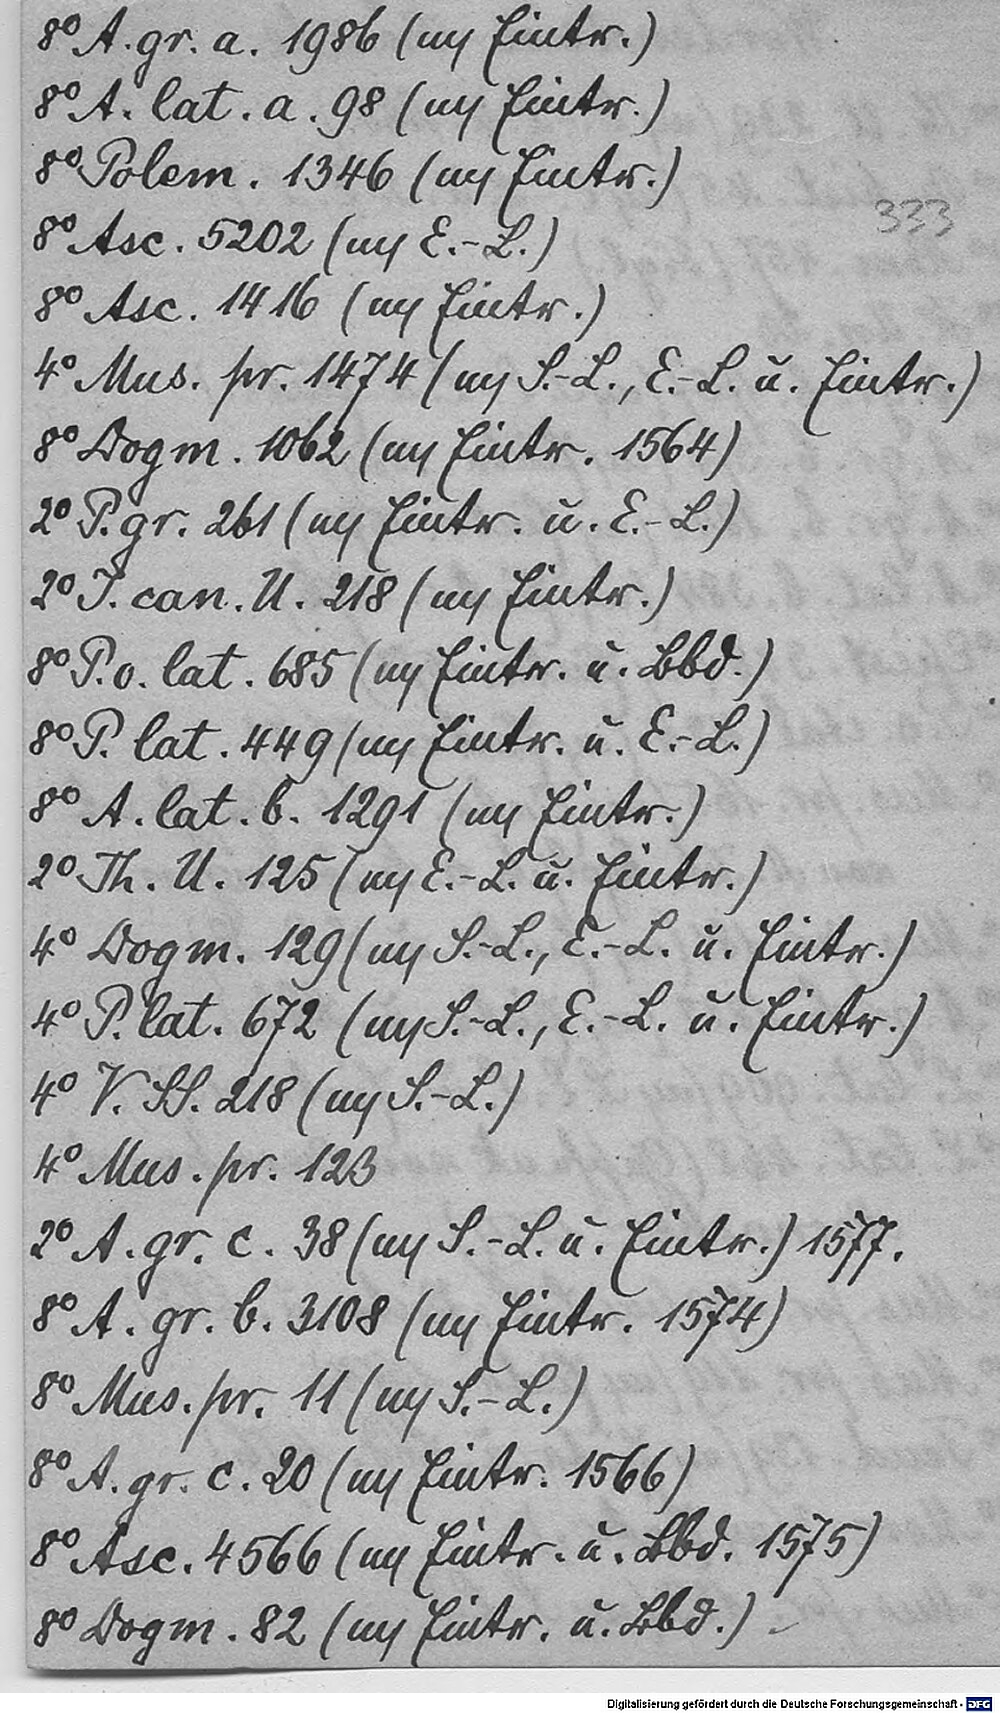 8° A. gr. a. 1986 (m Eintr.)
8° A. lat. a. 98 (m Eintr.)
8° Polem. 1346 (m Eintr.)
333
8° Asc. 5202 (m E.-L.)
8° Asc. 1416 (m Eintr.)
4° Mus. pr. 1474 (m S.-L., E.-L. u. Eintr.)
8° Dogm. 1062 (m Eintr. 1564)
2° P. gr. 261 (m Eintr. u. E.-L.)
2° J. can. U. 218 (m Eintr.)
8° P. o. lat. 685 (m Eintr. u. Lbd.)
8° P. lat. 449 (m Eintr. u. E.-L.)
8° A. lat. b. 1291 (m Eintr.)
2° Th. U. 125 (m E.-L. u. Eintr.)
4° Dogm. 129 (m S.-L., E.-L. u. Eintr.)
4° P. lat. 672 (m S.-L., E.-L. u. Eintr.)
4° V. SS. 218 (m S.-L.)
4° Mus. pr. 123
2° A. gr. c. 38 (m S.-L. u. Eintr.) 1577.
8° A. gr. b. 3108 (m Eintr. 1574)
8° Mus. pr. 11 (m S.-L.)
8° A. gr. c. 20 (m Eintr. 1566)
8° Asc. 4566 (m Eintr. u. Lbd. 1575)
8° Dogm. 82 (m Eintr. u. Lbd.)
Digitalisierung gefördert durch die Deutsche Forschungsgemeinschaft - DFG